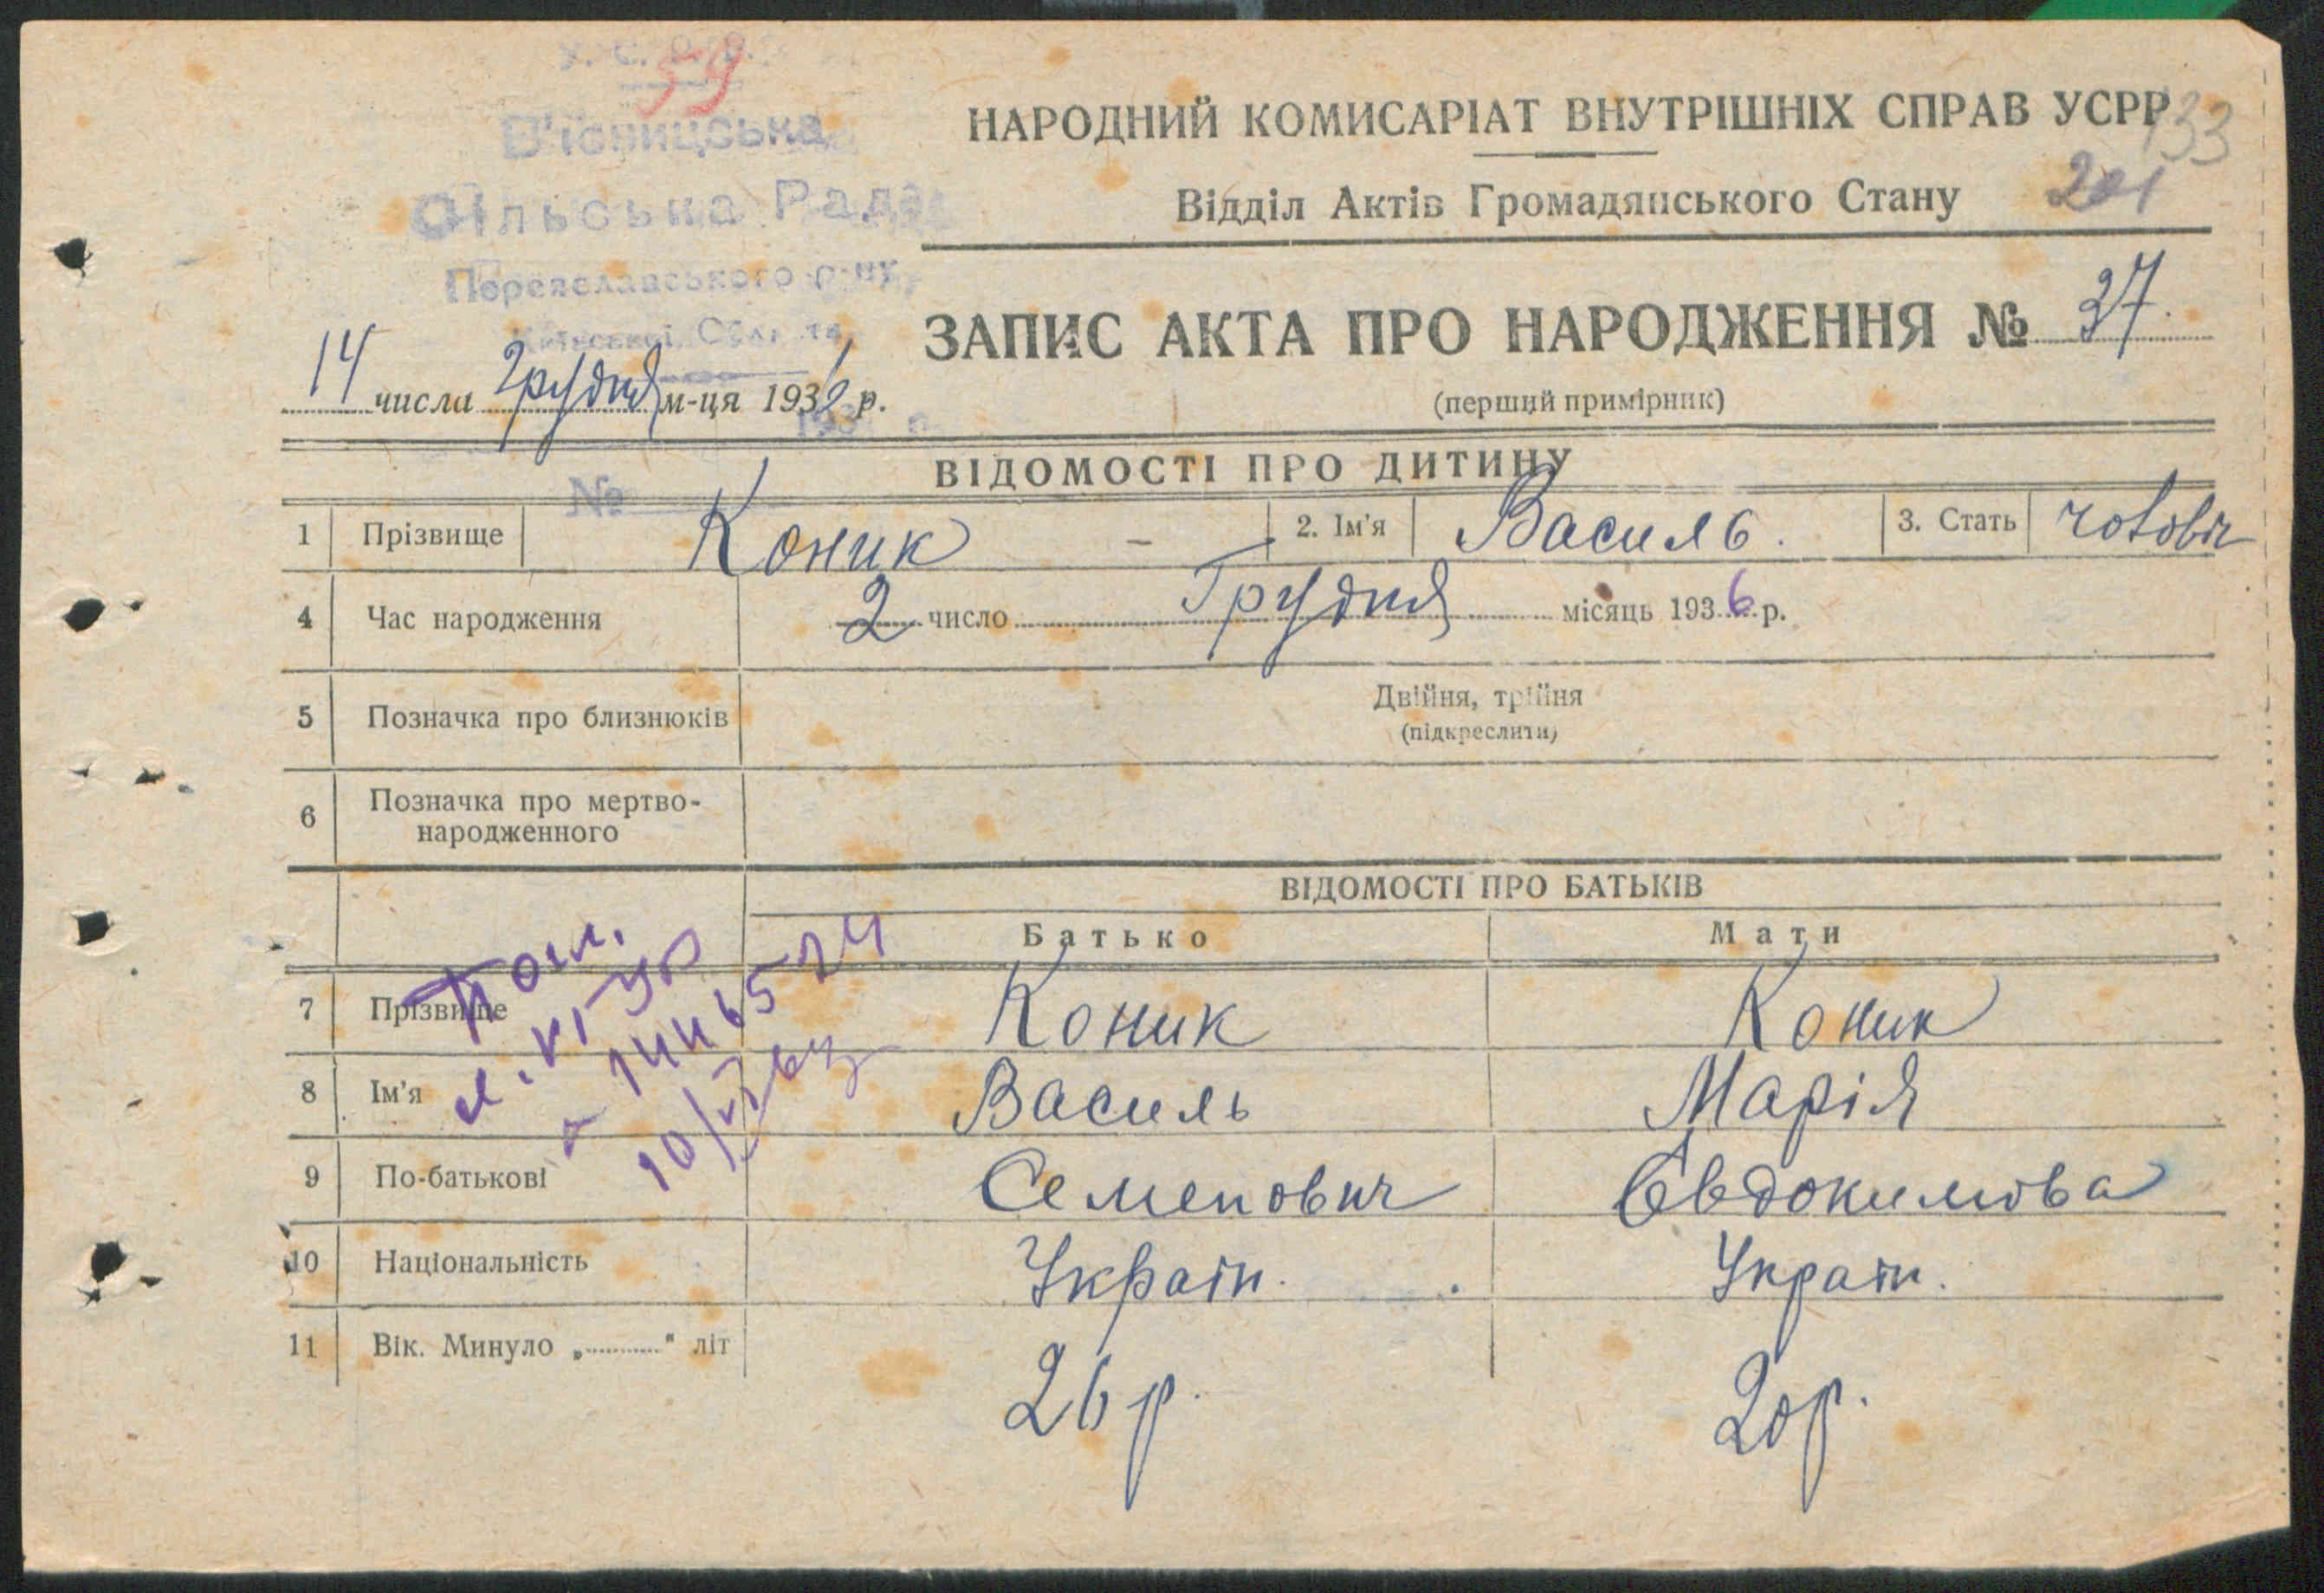 У. С. Р. Р.
59
В'юнищська
Сільська Рада
Переяславського р-ну,
Київської Області
193 р.
№
НАРОДНИЙ КОМИСАРІАТ ВНУТРІШНІХ СПРАВ УСРР
133
Відділ Актів Громадянського Стану
201
ЗАПИС АКТА ПРО НАРОДЖЕННЯ № 37.
(перший примірник)
14 числа Грудня м-ця 1936 р.
ВІДОМОСТІ ПРО ДИТИНУ
1 Прізвище Коник 2. Ім'я Василь. 3. Стать чоловіч
4 Час народження 2 число Грудня місяць 1936 р.
5 Позначка про близнюків Двійня, трійня
(підкреслити)
6 Позначка про мертво-
народженного
ВІДОМОСТІ ПРО БАТЬКІВ
Батько Мати
7 Прізвище Коник Коник
8 Ім'я Василь Марія
9 По-батькові Семенович Євдокимова
10 Національність Україн. Україн.
11 Вік. Минуло „ " літ 26 р. 20 р.